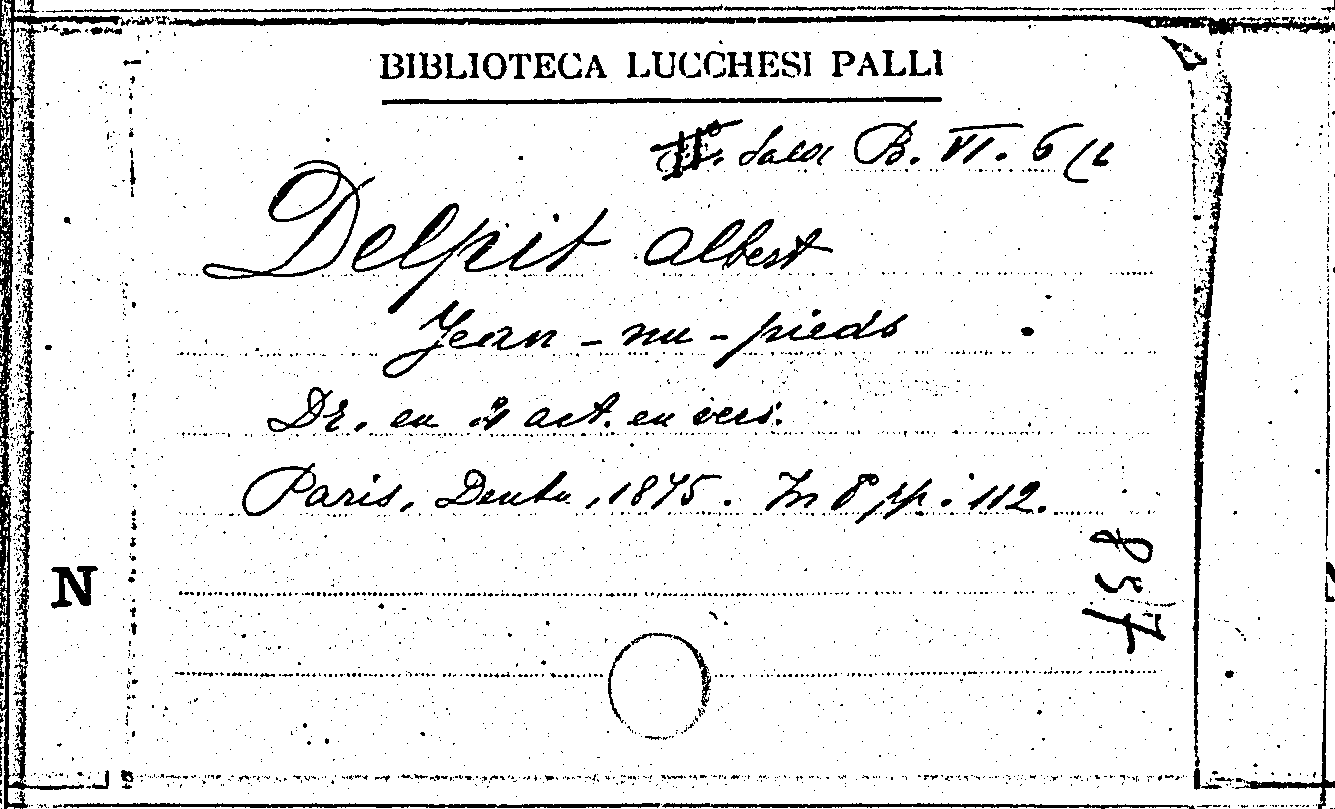 BIBLIOTECA LUCCHESI PALLI
Sala B. VI. 6
Delpit Albert
Jean-nu-pieds
Dr. en 4 act. en vers.
Paris, Dentu, 1875. In 8 pp. 112.
N